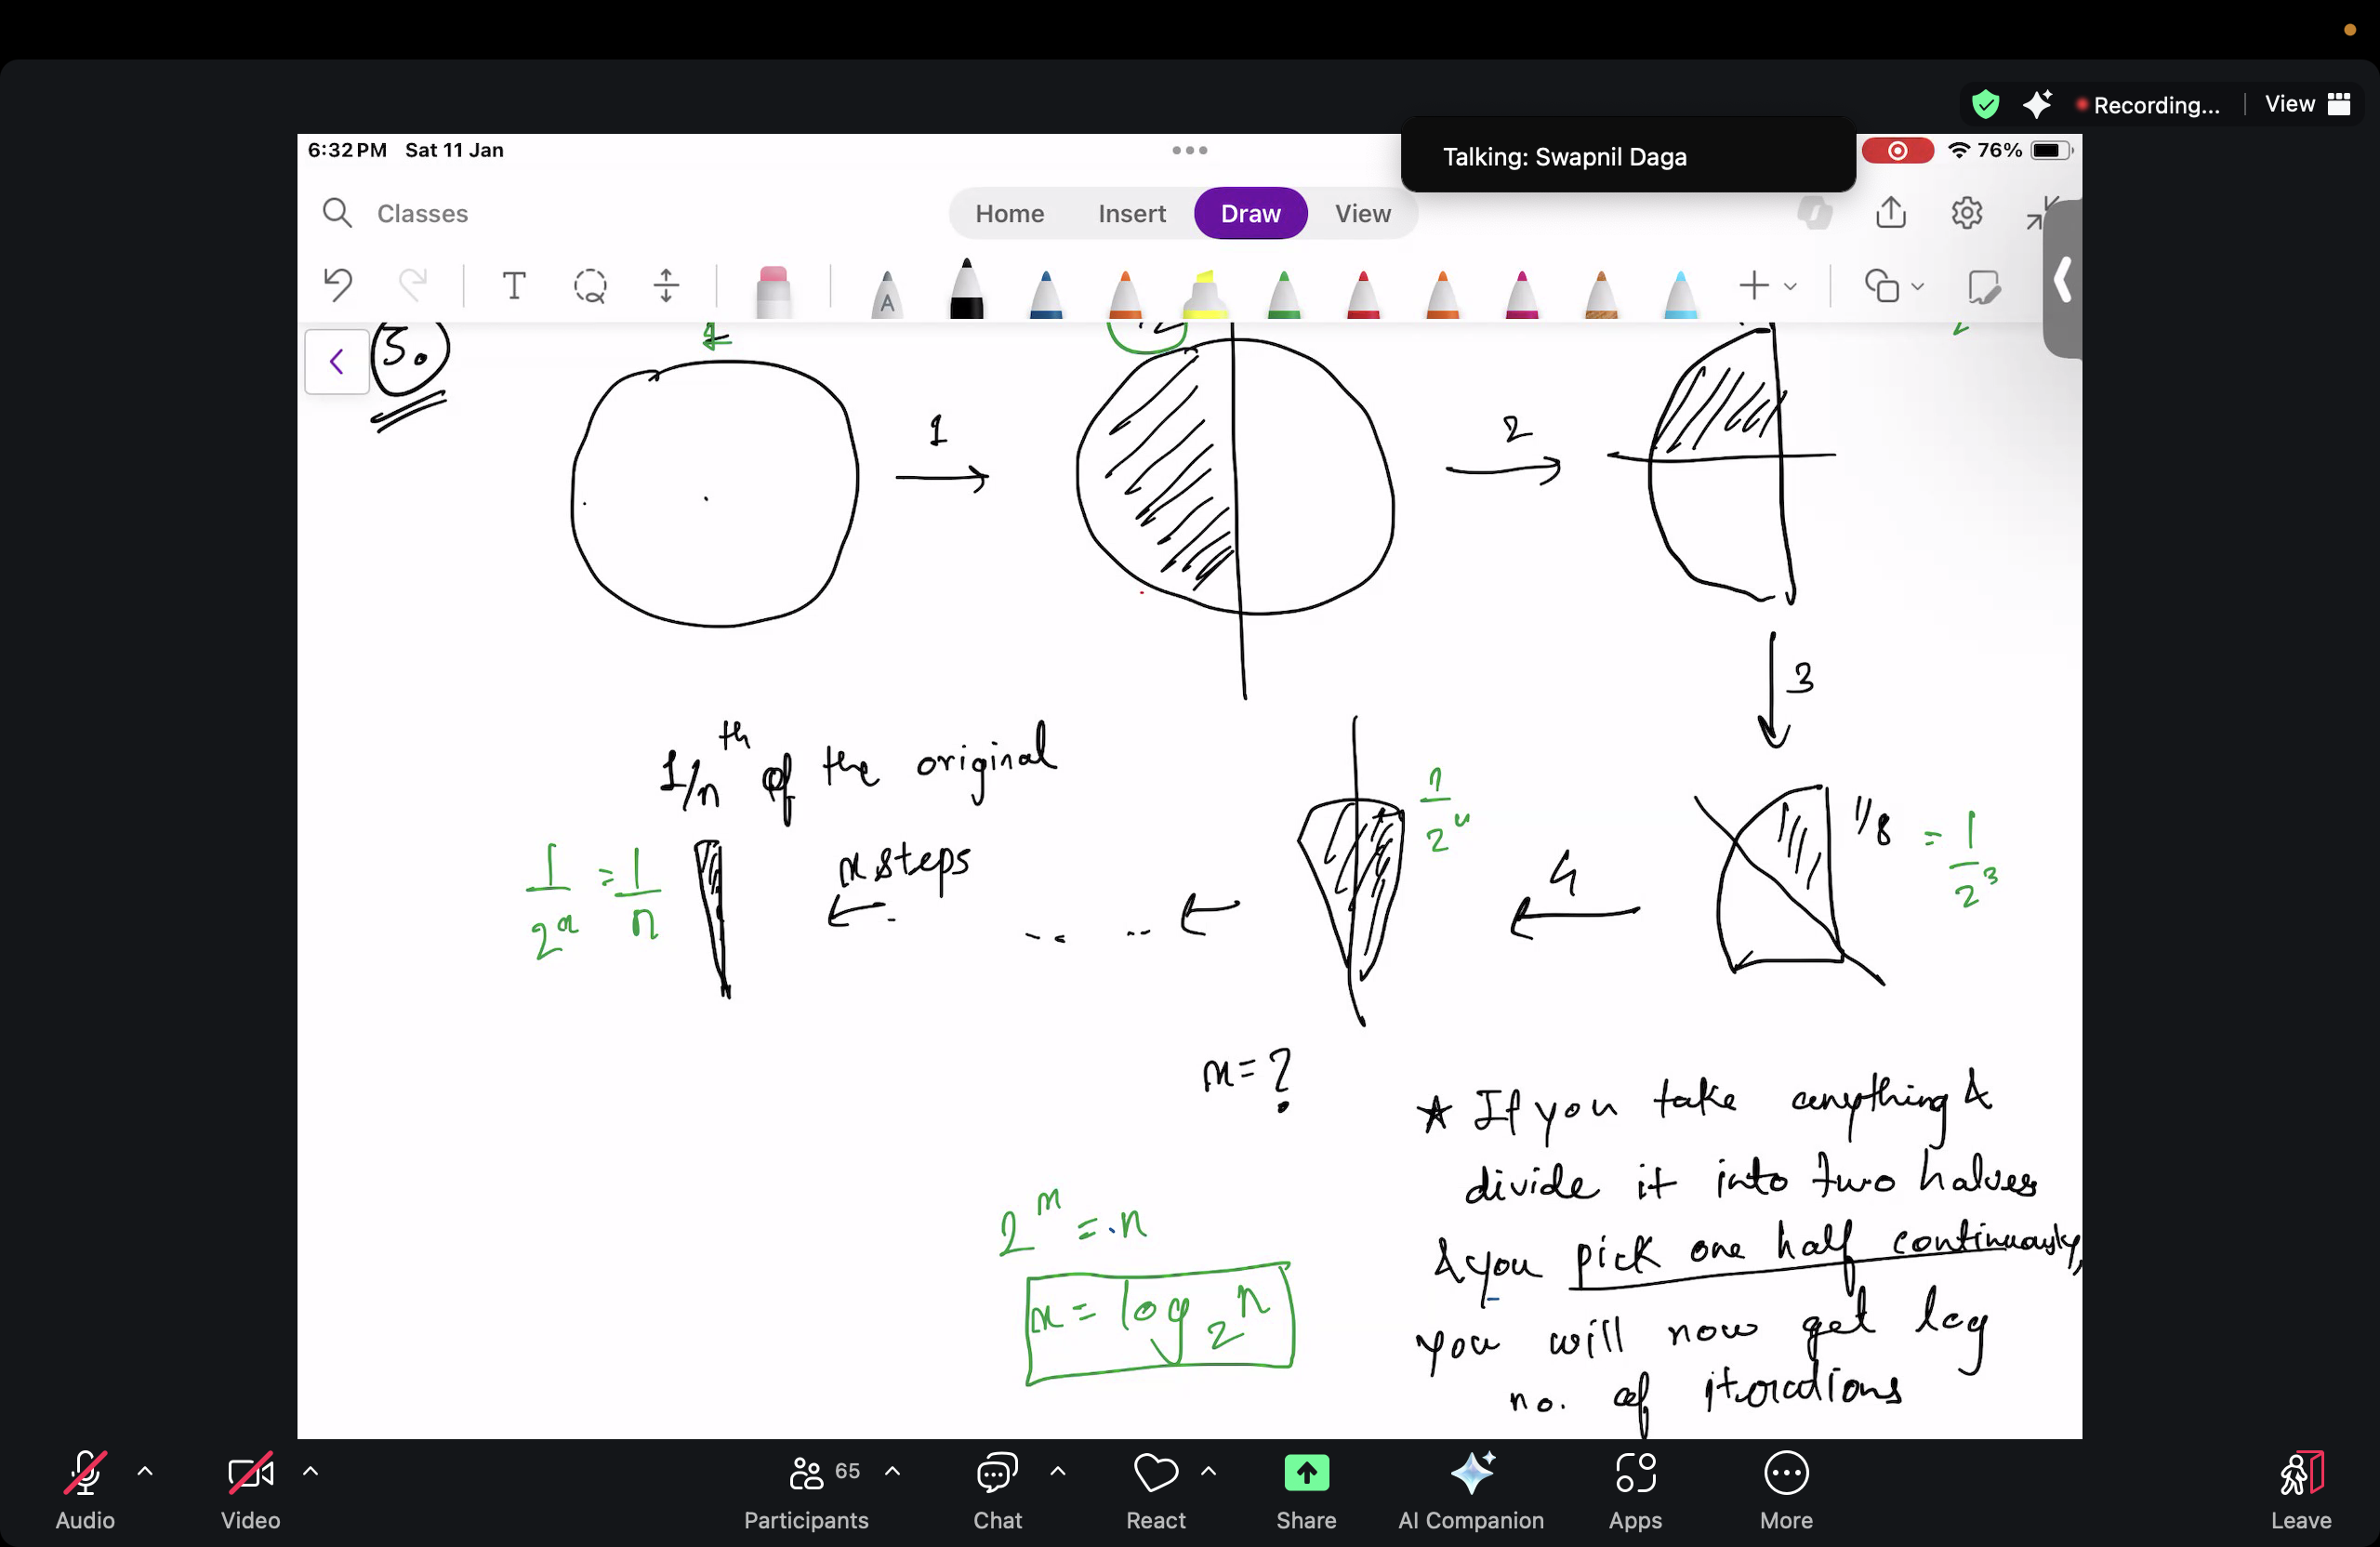 Recording...
View
6:32 PM Sat 11 Jan
Talking: Swapnil Daga
76%
Classes
Home
Insert
Draw
View
T
A
5.
1
2
3
1/nth of the original
1/2^4
1/8 = 1/2^3
1/2^x = 1/n
x steps
4
x = ?
★ If you take anything &
divide it into two halves
& you pick one half continuously,
you will now get log
no. of iterations
2^x = n
x = log₂ n
65
Audio
Video
Participants
Chat
React
Share
AI Companion
Apps
More
Leave